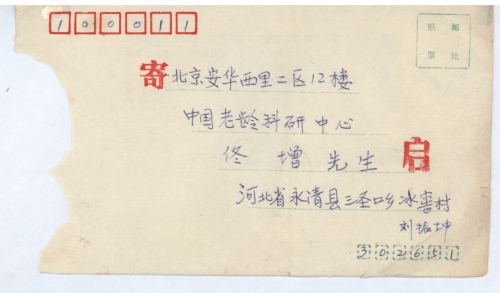 100011
邮
贴
票
处
寄 北京安华西里二区12楼
中国老龄科研中心
佟增先生 启
河北省永清县三圣口乡冰窖村
刘振坤
302651